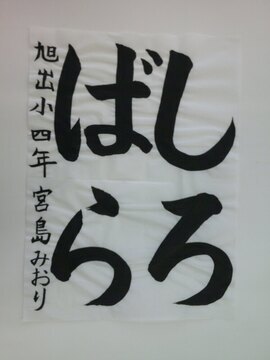 しろ
ばら
旭出小四年 宮島みおり